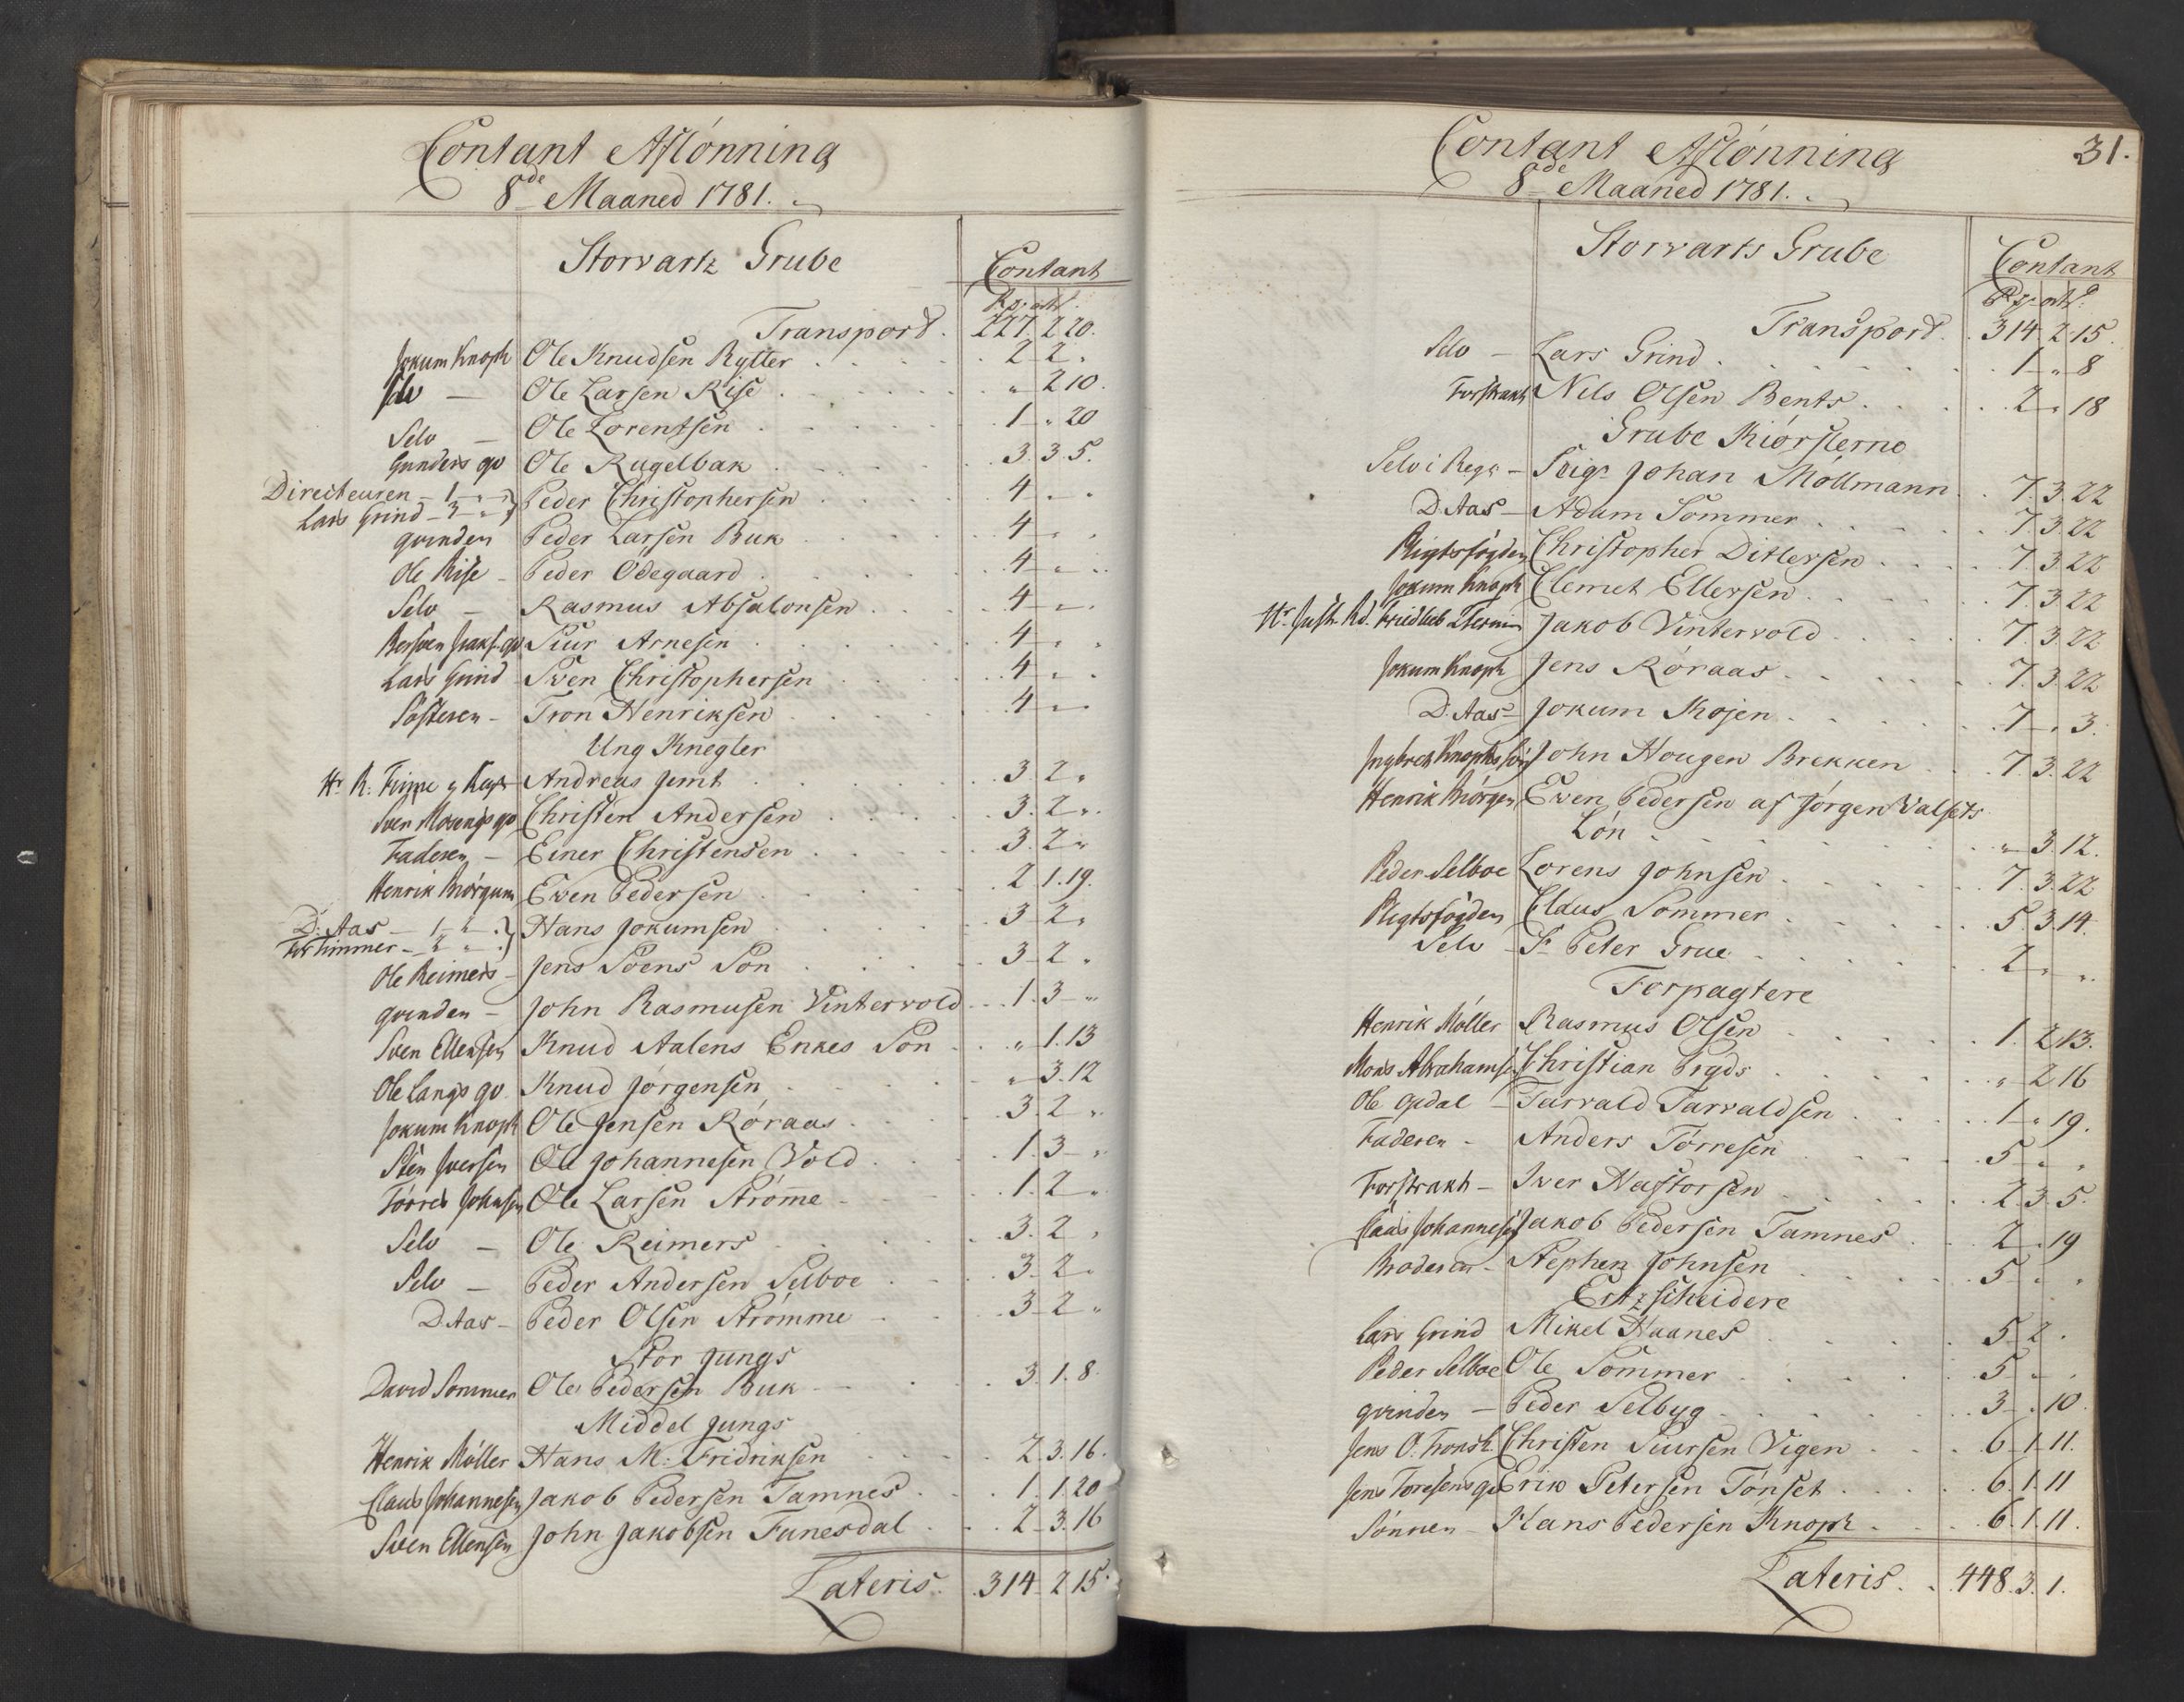 Contant Aflónning
8de Maaned 1781.
Storvartz Grube
Contant
Rdr ort s
Transport. 227. 2 20.
Jokum Knoph Ole Knudsen Rytter . . 2 - 2 "
selv - Ole Larsen Rise . . " 2 10.
Selv - Ole Lorentsen . . 1 - " 20
Gunders qv Ole Kugelbak . . 3. 3 5.
Directeuren - 1 - " - "
Lars Grind - 3 - " - " } Peder Christophersen . . 4 - " "
qvinden Peder Larsen Buk . . 4 - " "
Ole Rise - Peder Ódegaard . . 4 - " "
Selv - Rasmus Absalonsen . . 4 - " "
Siur Arnesen . . 4 - " "
Lars Grind Sven Christophersen . . 4 - " "
Sósteren - Tron Henriksen . . 4 - " "
Ung Knegter
Andreas Jemt . . 3. 2 "
Sven Mosengs qv Christen Andersen . . 3. 2 "
Faderen - Einer Christensen . . 3. 2 "
Henrik Bórgum Ewen Pedersen . . 2 1. 19.
D: Aas - 1 - 2 - "
Forskimmer - 2 " - " } Hans Jokumsen . . 3 - 2 "
Ole Reimers - Jens Soens Són . . 3 - 2 "
qvinden - John Rasmusen Vintervold . . 1. 3 - "
Sven Ellensen Knud Aalens Enkes Són . . " 1. 13
Ole Langs qv. Knud Jórgensen . . " 3. 12
Jokum Knoph Ole Jensen Róraas . . 3. 2 "
Sten Iversen Ole Johannesen Vold . . 1. 3 - "
Tórres Johnsen Ole Larsen Stróme . . 1. 2 "
Selv - Ole Reimers . . 3. 2 "
Selv - Peder Andersen Selboe . . 3. 2 "
D. Aas - Peder Olsen Strómme . . 3 - 2 "
Stor Jungs
David Sommer Ole Pedersen Buk . . 3. 1. 8.
Middel Jungs
Henrik Móller Hans M: Fridriksen . . 2. 3. 16.
Claus Johannesen Jakob Pedersen Tamnes . . 1. 1. 20
Sven Ellensen John Jakobsen Funesdal . . 2 - 3. 16
Lateris. 314 - 2 15.
31.
Contant Aflónning
8de Maaned 1781.
Storvarts Grube
Contant
Rdr ort s.
Transport. . 314 - 2 - 15.
Selv - Lars Grind . . 1 - " 8
Forstrakt Nils Olsen Bents . . 2 - " 18
Grube Kiórslerne
Selv i Regn - Seigr Johan Móllmann . . 7. 3. 22
D. Aas - Adam Sommer . . 7. 3. 22
Pligtsfógden Christopher Ditlersen . . 7. 3. 22
Jokum Knoph Clemet Ellersen . . 7. 3. 22
Hr. Just. Rd. Jakob Vintervold . . 7. 3. 22
Jokum Knoph Jens Róraas . . 7. 3. 22
D. Aas - Jokum Kojen . . 7 - " 3.
John Hougen Brekken . . 7. 3. 22
Henrik Bórgen Ewen Pedersen af Jórgen Valsets
Lón . . " 3. 12.
Peder Selboe Lorens Johnsen . . 7. 3. 22
Pligtsfógden Claus Sommer . . 5. 3. 14.
Selv - Sr Peter Grue . . 2 " "
Forpagtere
Henrik Móller Rasmus Olsen . . 1. 2 13.
Mons Abrahamsen Christian Pryds . . " 2 16
Ole Opdal - Tarvald Tarvaldsen . . 1 - " 19.
Faderen - Anders Tórresen . . 5 - " "
Forstrakt - Iver Hastorsen . . 2. 3. 5.
Claus Johannesen Jakob Pedersen Tamnes . . 2 - " 19
Broderen - Stephen Johnsen . . 5 - " "
Ertzscheidere
Lars Grind Mikel Haanes . . 5 - 2 .
Peder Selboe Ole Sommer . . 5 - " .
qvinden - Peder Selbyg . . 3 - " 10.
Jens O. Tronst. Christen Siursen Vigen . . 6 - 1. 11.
Jens Toresens qv Erik Petersen Tónset . . 6. 1. 11
Sónnen - Hans Pedersen Knoph . . 6. 1. 11.
Lateris. . 448. 3. 1.